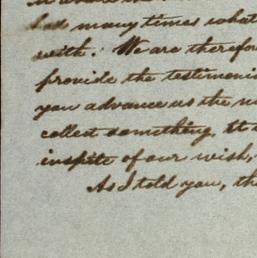 had many times what
with. We are therefor
provide the testimoni
you advance us the m
collect something. It
inspite of our wish,
As I told you, th